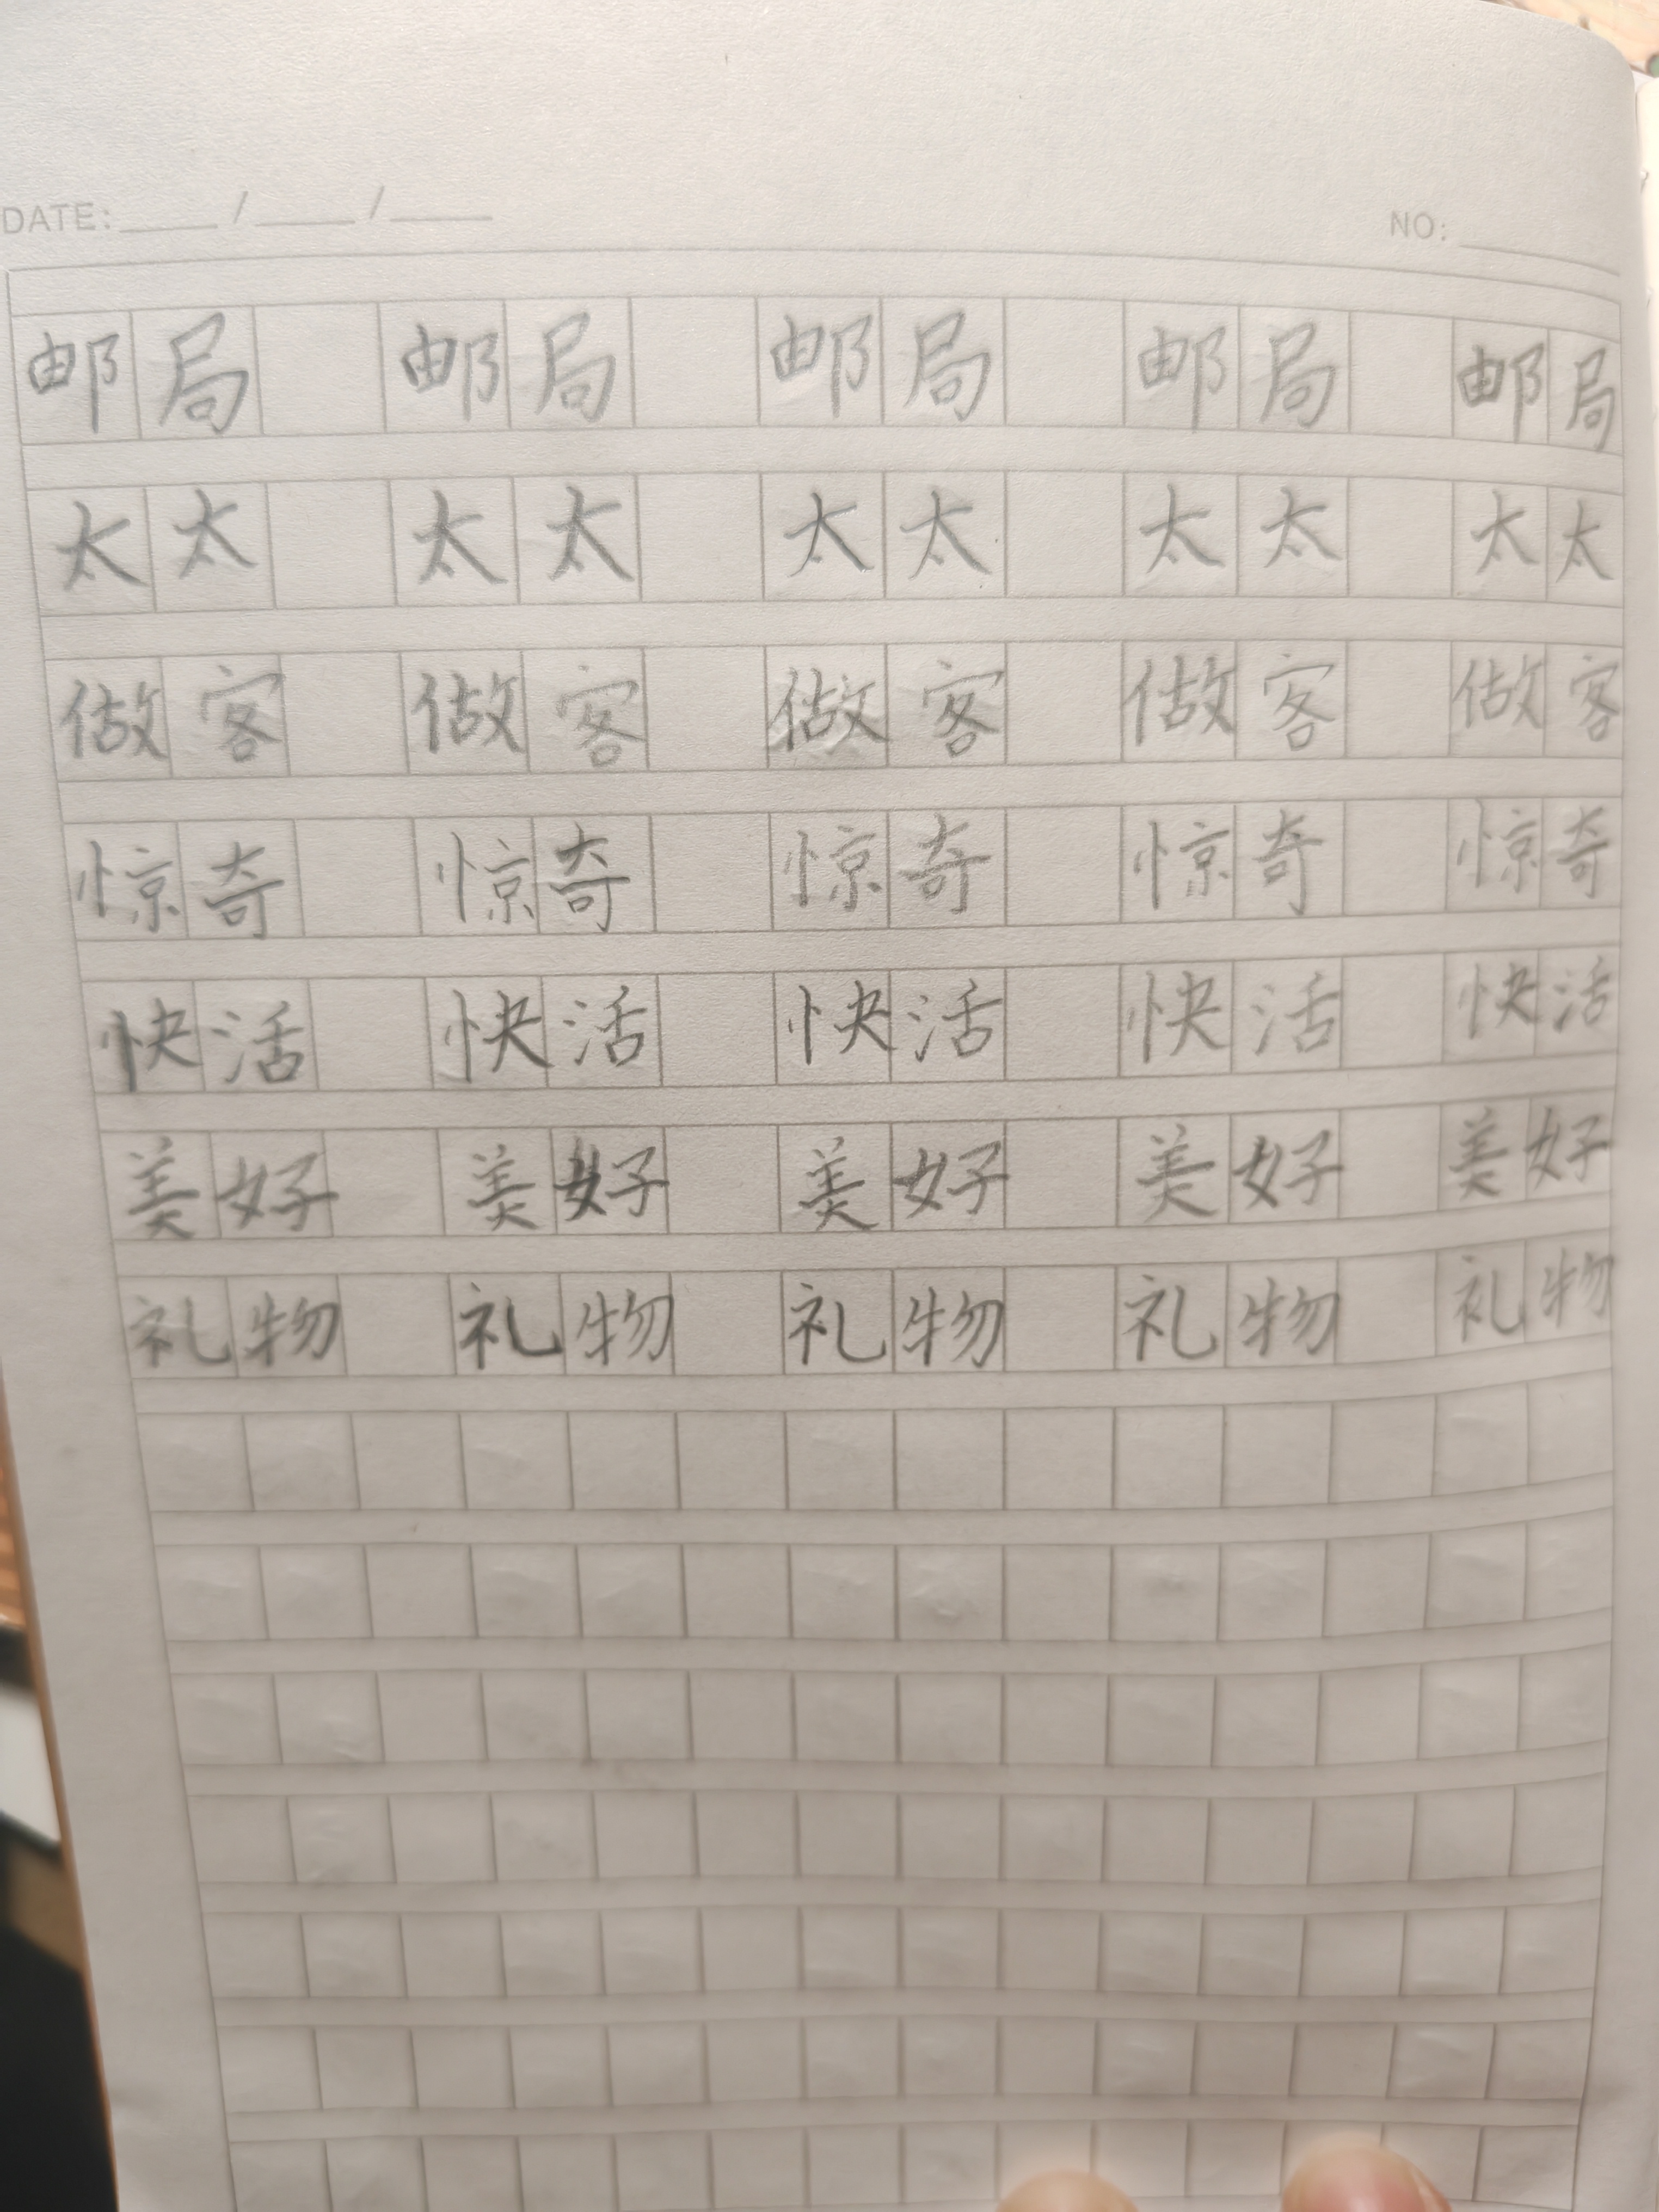 DATE: ____ / ____ / ____ NO: ____
邮局 邮局 邮局 邮局 邮局
太太 太太 太太 太太 太太
做客 做客 做客 做客 做客
惊奇 惊奇 惊奇 惊奇 惊奇
快活 快活 快活 快活 快活
美好 美好 美好 美好 美好
礼物 礼物 礼物 礼物 礼物